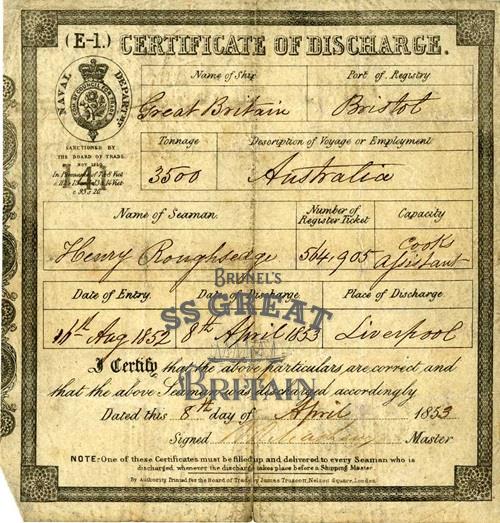 (E-1.) CERTIFICATE OF DISCHARGE.
NAVAL DEPARTMENT
SANCTIONED BY
THE BOARD OF TRADE
Name of Ship Port of Registry
Great Britain Bristol
Tonnage Description of Voyage or Employment
3500 Australia
Name of Seaman. Number of Register Ticket Capacity
Henry Roughsedge 564,905 Cooks Assistant
BRUNEL'S
SS GREAT
BRITAIN
Date of Entry. Date of Discharge Place of Discharge
Aug 1852 8th April 1853 Liverpool
I Certify that the above particulars are correct and
that the above Seaman was discharged accordingly
Dated this 8th day of April 1853
Signed Master
NOTE: One of these Certificates must be filled up and delivered to every Seaman who is
discharged, whenever the discharge takes place before a Shipping Master.
By Authority Printed for the Board of Trade by James Truscott, Nelson Square, London